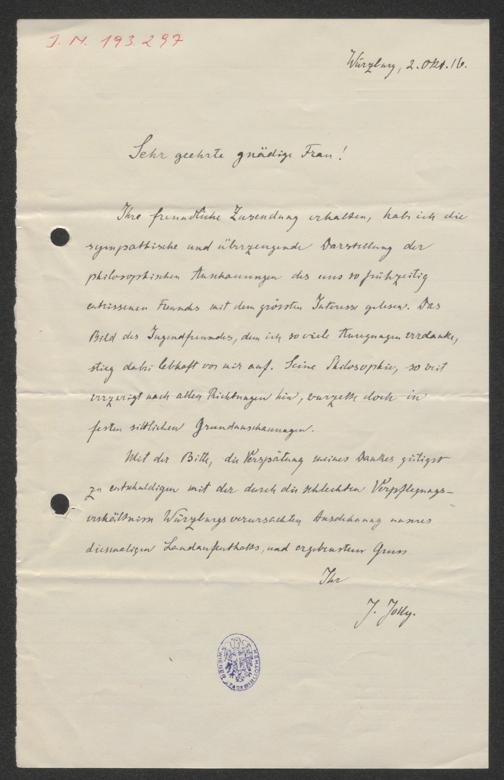 J. N. 193.297
Würzburg, 2. Okt. 16.
Sehr geehrte gnädige Frau!
Ihre freundliche Zusendung erhalten, habe ich die
sympathische und überzeugende Darstellung der
philosophischen Anschauungen des uns so frühzeitig
entrissenen Freundes mit dem grössten Interesse gelesen. Das
Bild des Jugendfreundes, dem ich so viele Anregungen verdanke,
stieg dabei lebhaft vor mir auf. Seine Philosophie, so weit
verzweigt nach allen Richtungen hin, wurzelte doch in
festen sittlichen Grundanschauungen.
Mit der Bitte, die Verspätung meines Dankes gütigst
zu entschuldigen mit der durch die schlechten Verpflegungs-
verhältnisse Würzburgs verursachten Ausdehnung unseres
diesmaligen Landaufenthalts, und ergebenstem Gruss
Ihr
J. Jolly.